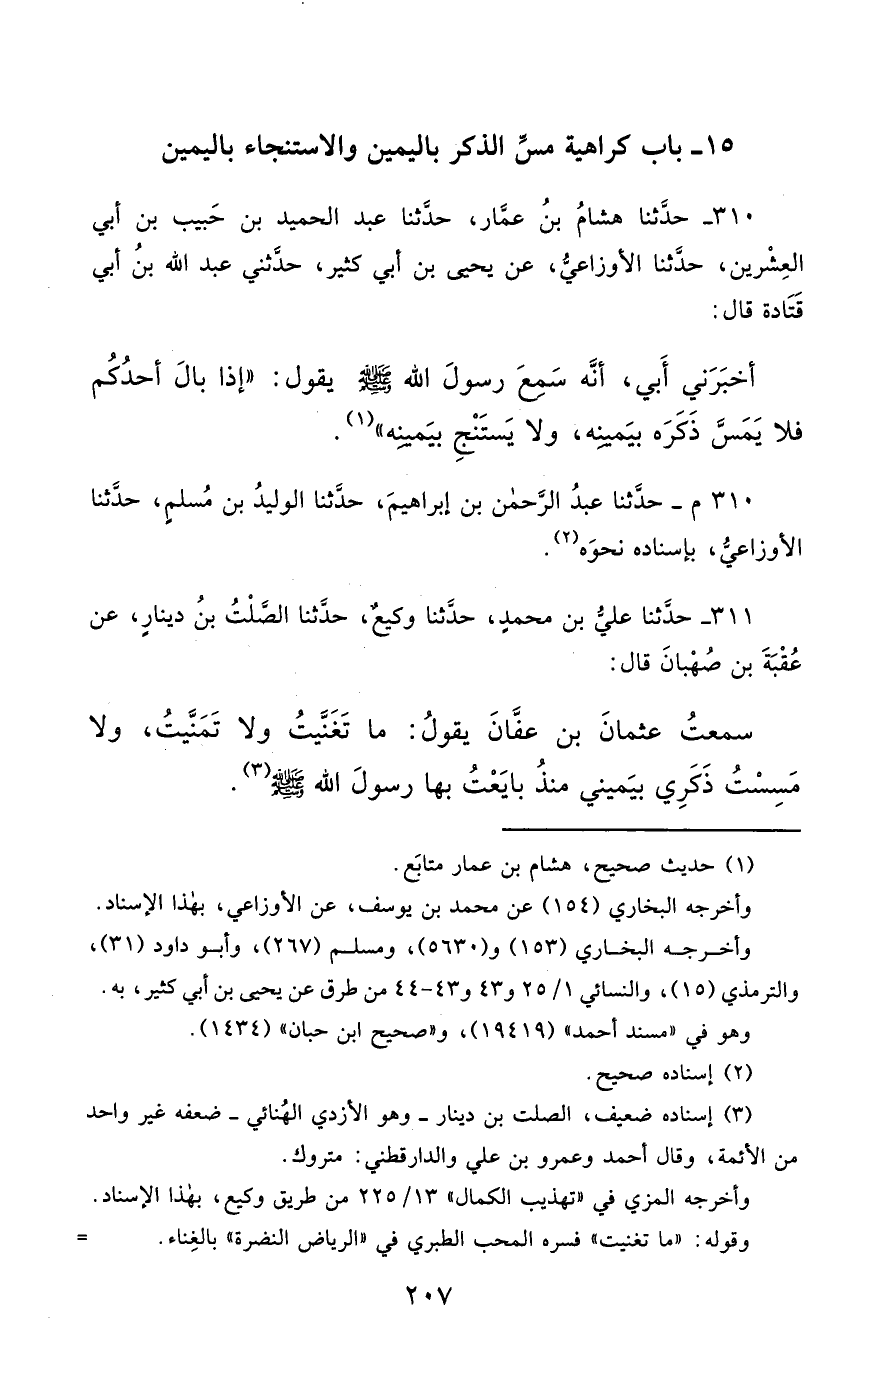 ١٥ـ باب كراهية مسِّ الذكر باليمين والاستنجاء باليمين
٣١٠ـ حدَّثنا هشامُ بنُ عمَّار، حدَّثنا عبد الحميد بن حَبيب بن أبي
العِشْرين، حدَّثنا الأوزاعيُّ، عن يحيى بن أبي كثير، حدَّثني عبد الله بنُ أبي
قَتَادة قال:
أخبَرَني أَبي، أنَّه سَمِعَ رسولَ الله ﷺ يقول: «إذا بالَ أحدُكُم
فلا يَمَسَّ ذَكَرَه بيَمينِه، ولا يَستَنْجِ بيَمينِه»(١).
٣١٠ م ـ حدَّثنا عبدُ الرَّحمٰن بن إبراهيمَ، حدَّثنا الوليدُ بن مُسلمٍ، حدَّثنا
الأوزاعيُّ، بإسناده نحوَه(٢).
٣١١ـ حدَّثنا عليُّ بن محمدٍ، حدَّثنا وكيعٌ، حدَّثنا الصَّلْتُ بنُ دينارٍ، عن
عُقْبَةَ بن صُهْبانَ قال:
سمعتُ عثمانَ بن عفَّانَ يقولُ: ما تَغَنَّيتُ ولا تَمَنَّيتُ، ولا
مَسِسْتُ ذَكَرِي بيَميني منذُ بايَعْتُ بها رسولَ الله ﷺ(٣).
(١) حديث صحيح، هشام بن عمار متابَع.
وأخرجه البخاري (١٥٤) عن محمد بن يوسف، عن الأوزاعي، بهٰذا الإسناد.
وأخـرجـه البخـاري (١٥٣) و(٥٦٣٠)، ومسلـم (٢٦٧)، وأبـو داود (٣١)،
والترمذي (١٥)، والنسائي ١/ ٢٥ و٤٣ و٤٣-٤٤ من طرق عن يحيى بن أبي كثير، به.
وهو في «مسند أحمد» (١٩٤١٩)، و«صحيح ابن حبان» (١٤٣٤).
(٢) إسناده صحيح.
(٣) إسناده ضعيف، الصلت بن دينار ـ وهو الأزدي الهُنائي ـ ضعفه غير واحد
من الأئمة، وقال أحمد وعمرو بن علي والدارقطني: متروك.
وأخرجه المزي في «تهذيب الكمال» ١٣/ ٢٢٥ من طريق وكيع، بهٰذا الإسناد.
وقوله: «ما تغنيت» فسره المحب الطبري في «الرياض النضرة» بالغِناء. =
٢٠٧